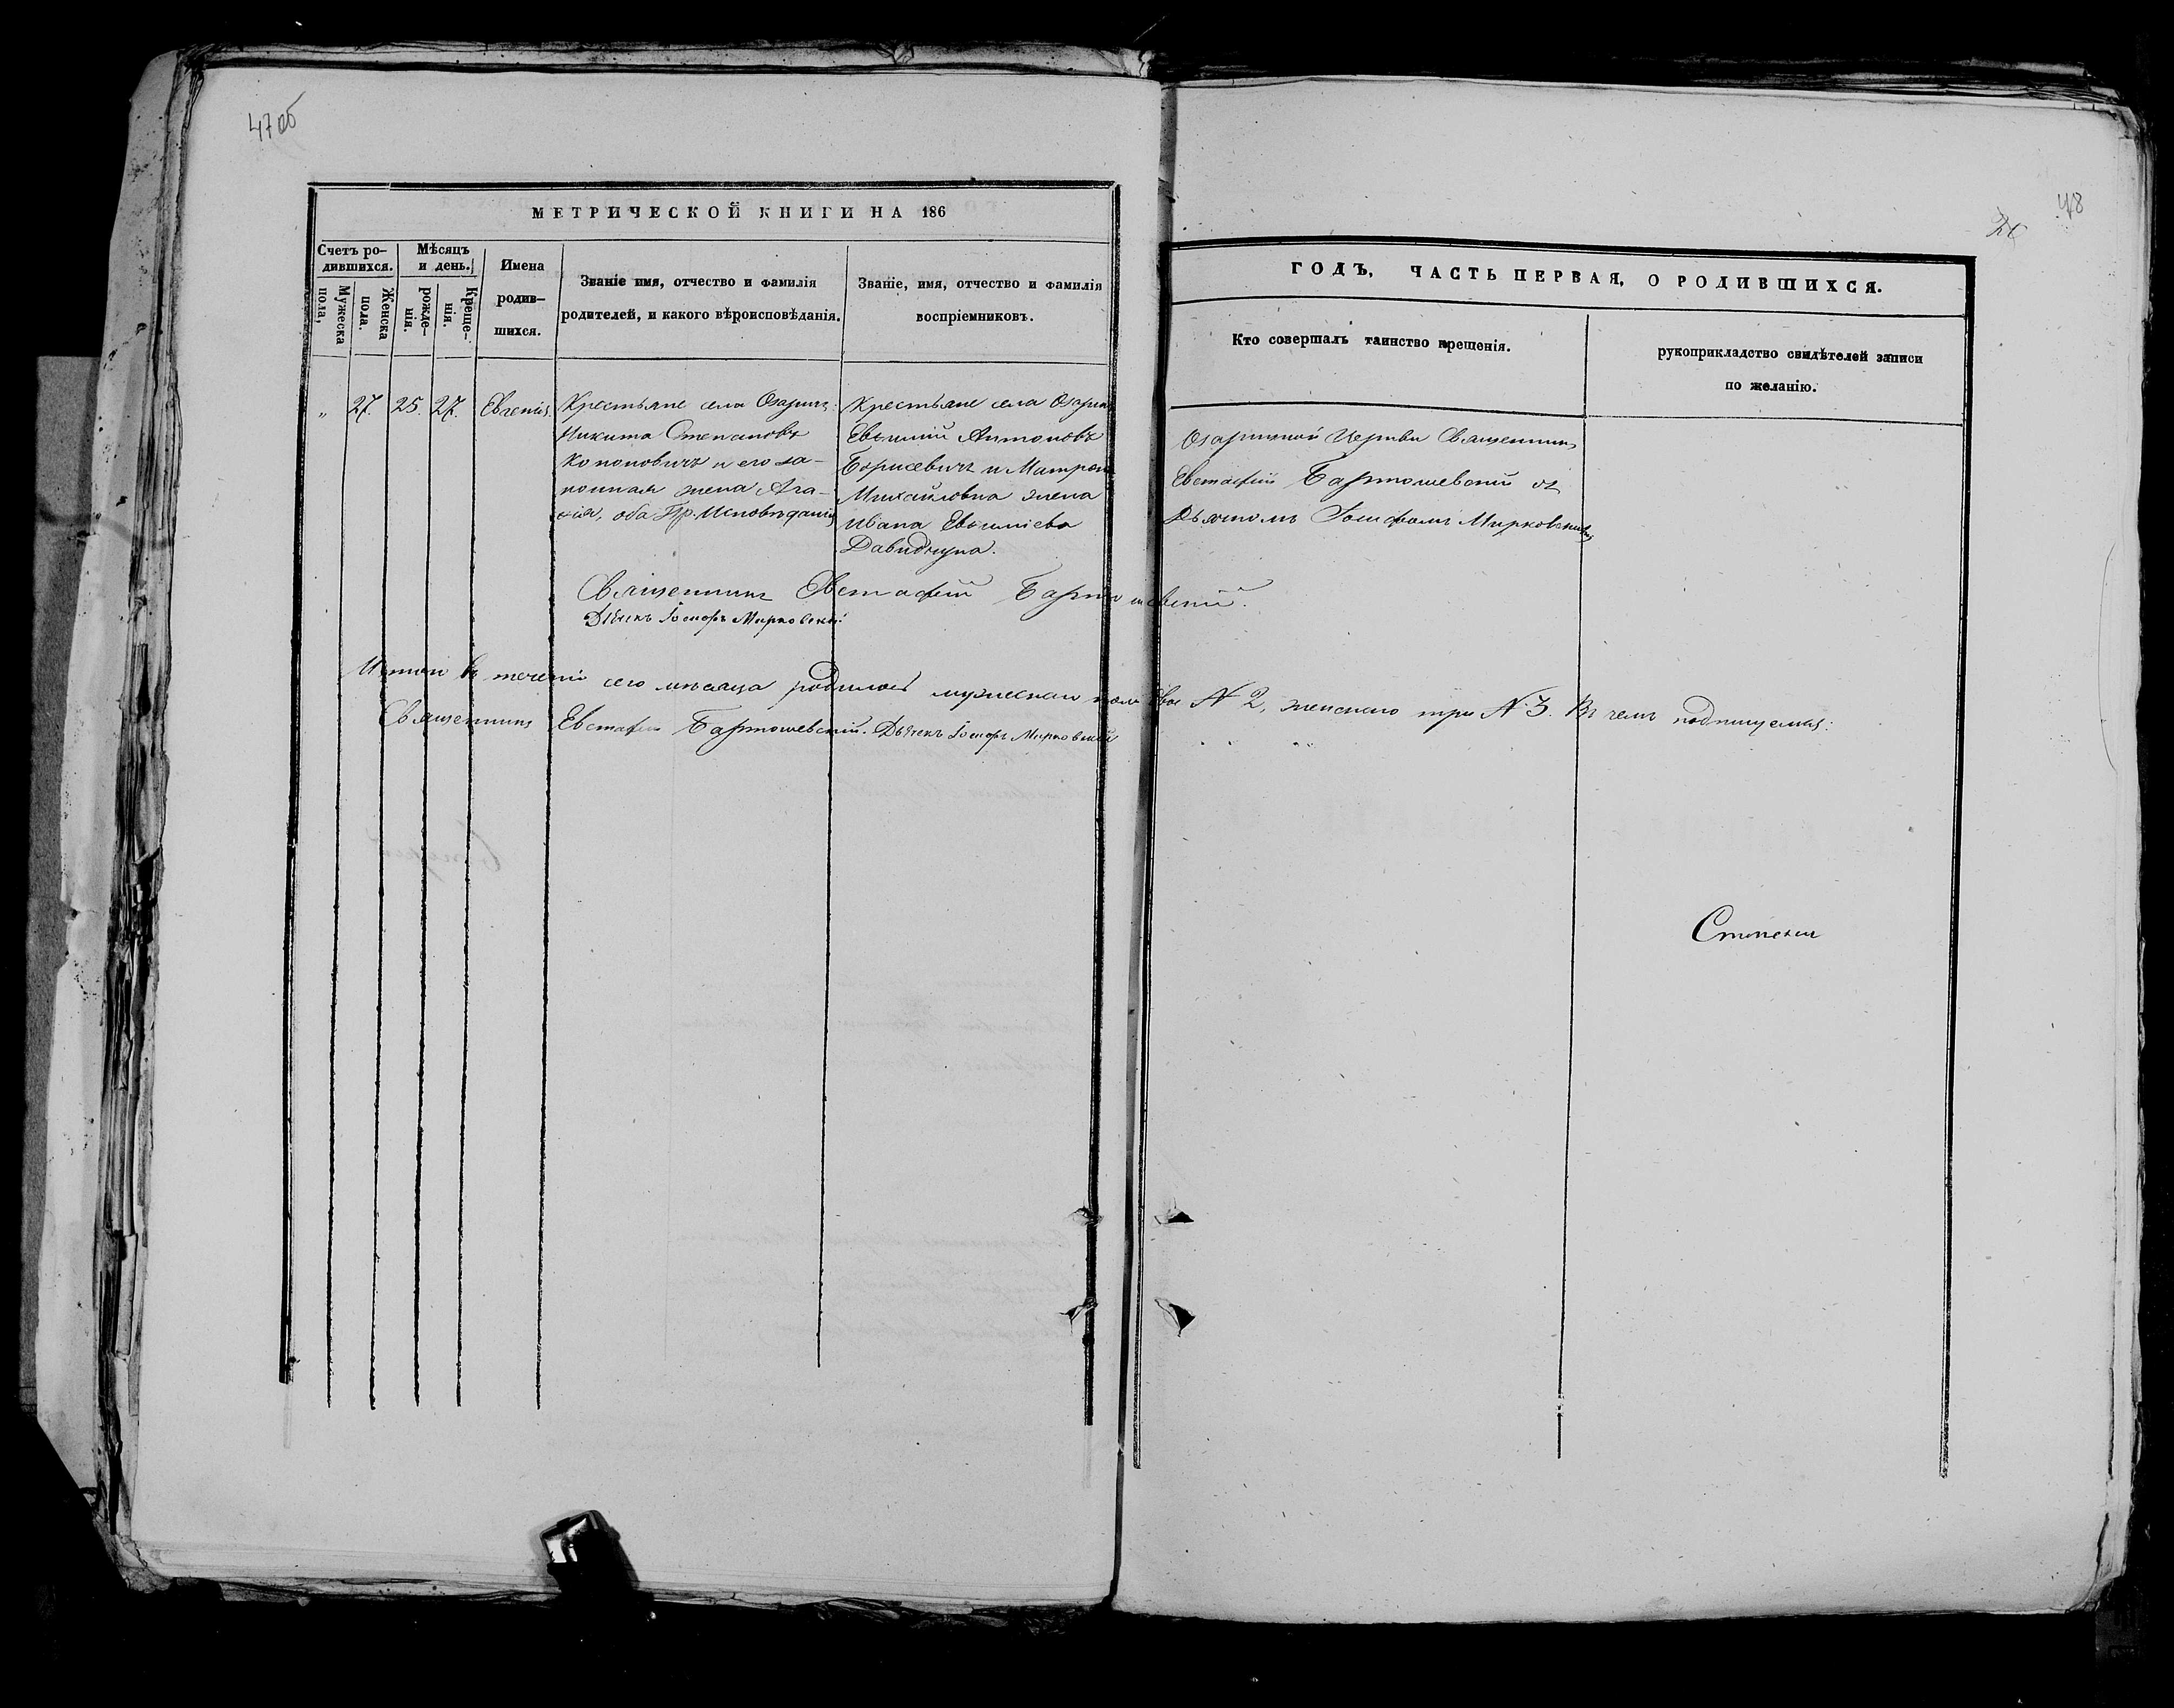 47об
48
МЕТРИЧЕСКОЙ КНИГИ НА 186
Счетъ ро-
дившихся.
Мужеска
пола,
Женска
пола.
Мѣсяцъ
и день.
рожде-
нія.
Креще-
нія.
Имена
родив-
шихся.
Званіе имя, отчество и фамилія
родителей, и какого вѣроисповѣданія.
Званіе, имя, отчество и фамилія
воспріемниковъ.
„ 27. 25. 27. Евгенія
Крестьяне села Озаричъ
Никита Степановъ
Кононовичъ и его за-
конная жена Ага-
ѳія, оба Пр. Исповѣданія
Крестьяне села Озаричъ
Евѳимій Антоновъ
Борисевичъ и Матрона
Михайловна жена
Ивана Евѳиміева
Давидчука.
Священникъ Евстафій Бартошевскій.
Дьячекъ Іосифъ Мирковскій
Итого въ теченіи сего мѣсяца родилось мужескаго пола двое N 2, женскаго три N 3. Въ чемъ подписуемся:
Священникъ Евстафій Бартошевскій. Дьячекъ Іосифъ Мирковскій
ГОДЪ, ЧАСТЬ ПЕРВАЯ, О РОДИВШИХСЯ.
Кто совершалъ таинство крещенія.
рукоприкладство свидѣтелей записи
по желанію.
Озарицкой Церкви Священникъ
Евстафій Бартошевскій съ
Дьячкомъ Іосифомъ Мирковскимъ